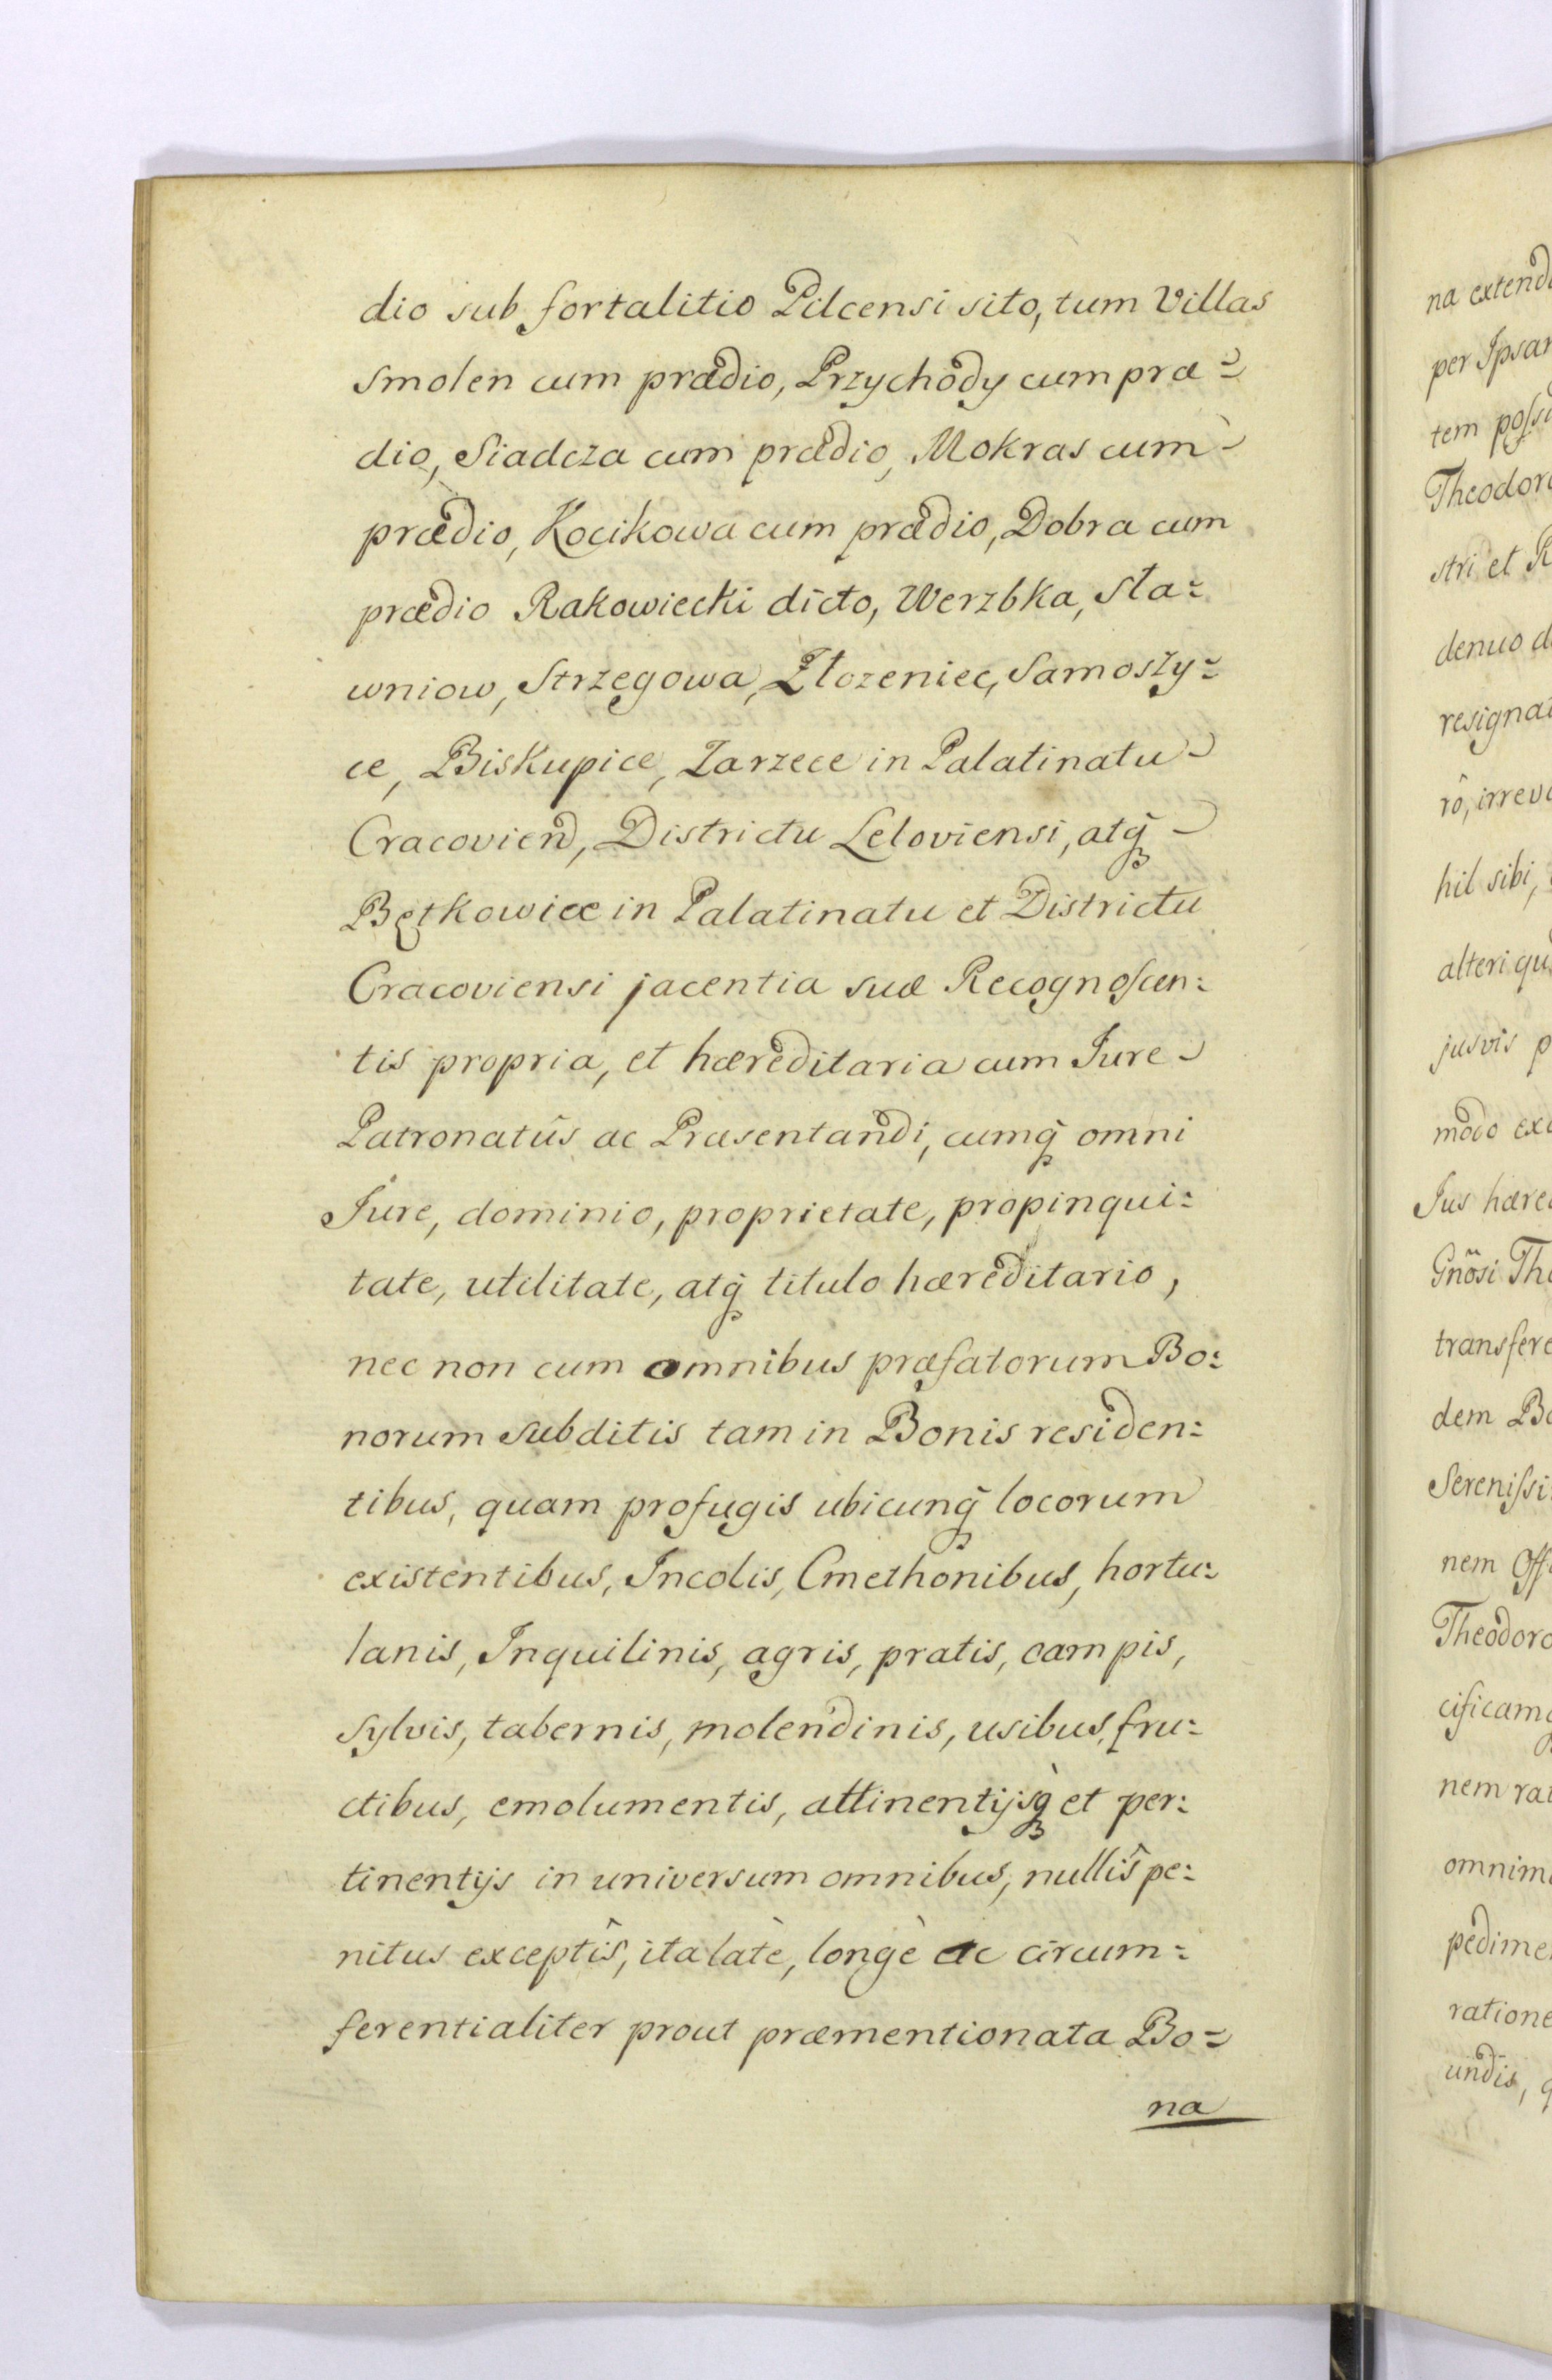 dio sub fortalitio Pilcensi sito, tum Villas
Smolen cum prædio, Przychody cum præ=
dio, Siadcza cum prædio, Mokras cum
prædio, Kocikowa cum prædio, Dobra cum
prædio Rakowiecki dicto, Werzbka, Sła=
wniow, Strzegowa, Złozeniec, Samoszy=
ce, Biskupice, Zarzece in Palatinatu
Cracovien, Districtu Leloviensi, atq̃
Bętkowice in Palatinatu et Districtu
Cracoviensi jacentia suæ Recognoscen:
tis propria, et hæreditaria cum Iure
Patronatûs ac Præsentandi, cumq̃ omni
Iure, dominio, proprietate, propinqui:
tate, utilitate, atq̃ titulo hæreditario,
nec non cum omnibus præfatorum Bo:
norum Subditis tam in Bonis residen:
tibus, quam profugis ubicunq̃ locorum
existentibus, Incolis, Cmethonibus, hortu:
lanis, Inquilinis, agris, pratis, campis,
Sylvis, tabernis, molendinis, usibus, fru:
ctibus, emolumentis, attinentijsq̃ et per:
tinentijs in universum omnibus, nullîs pe:
nitus exceptîs, ita latè, longè ac circum=
ferentialiter prout præmentionata Bo=
na
na extend
per Ipsa
tem poss
Theodor
stri et R
denuo d
resigna
rô, irrevo
hil sibi,
alteri qu
jusvis p
modo ex
Jus hære
Gñosi Th
transfer
dem Bo
Serenissi
nem Off
Theodoro
cificam
nem ra
omnim
pedime
ratione
undis, q